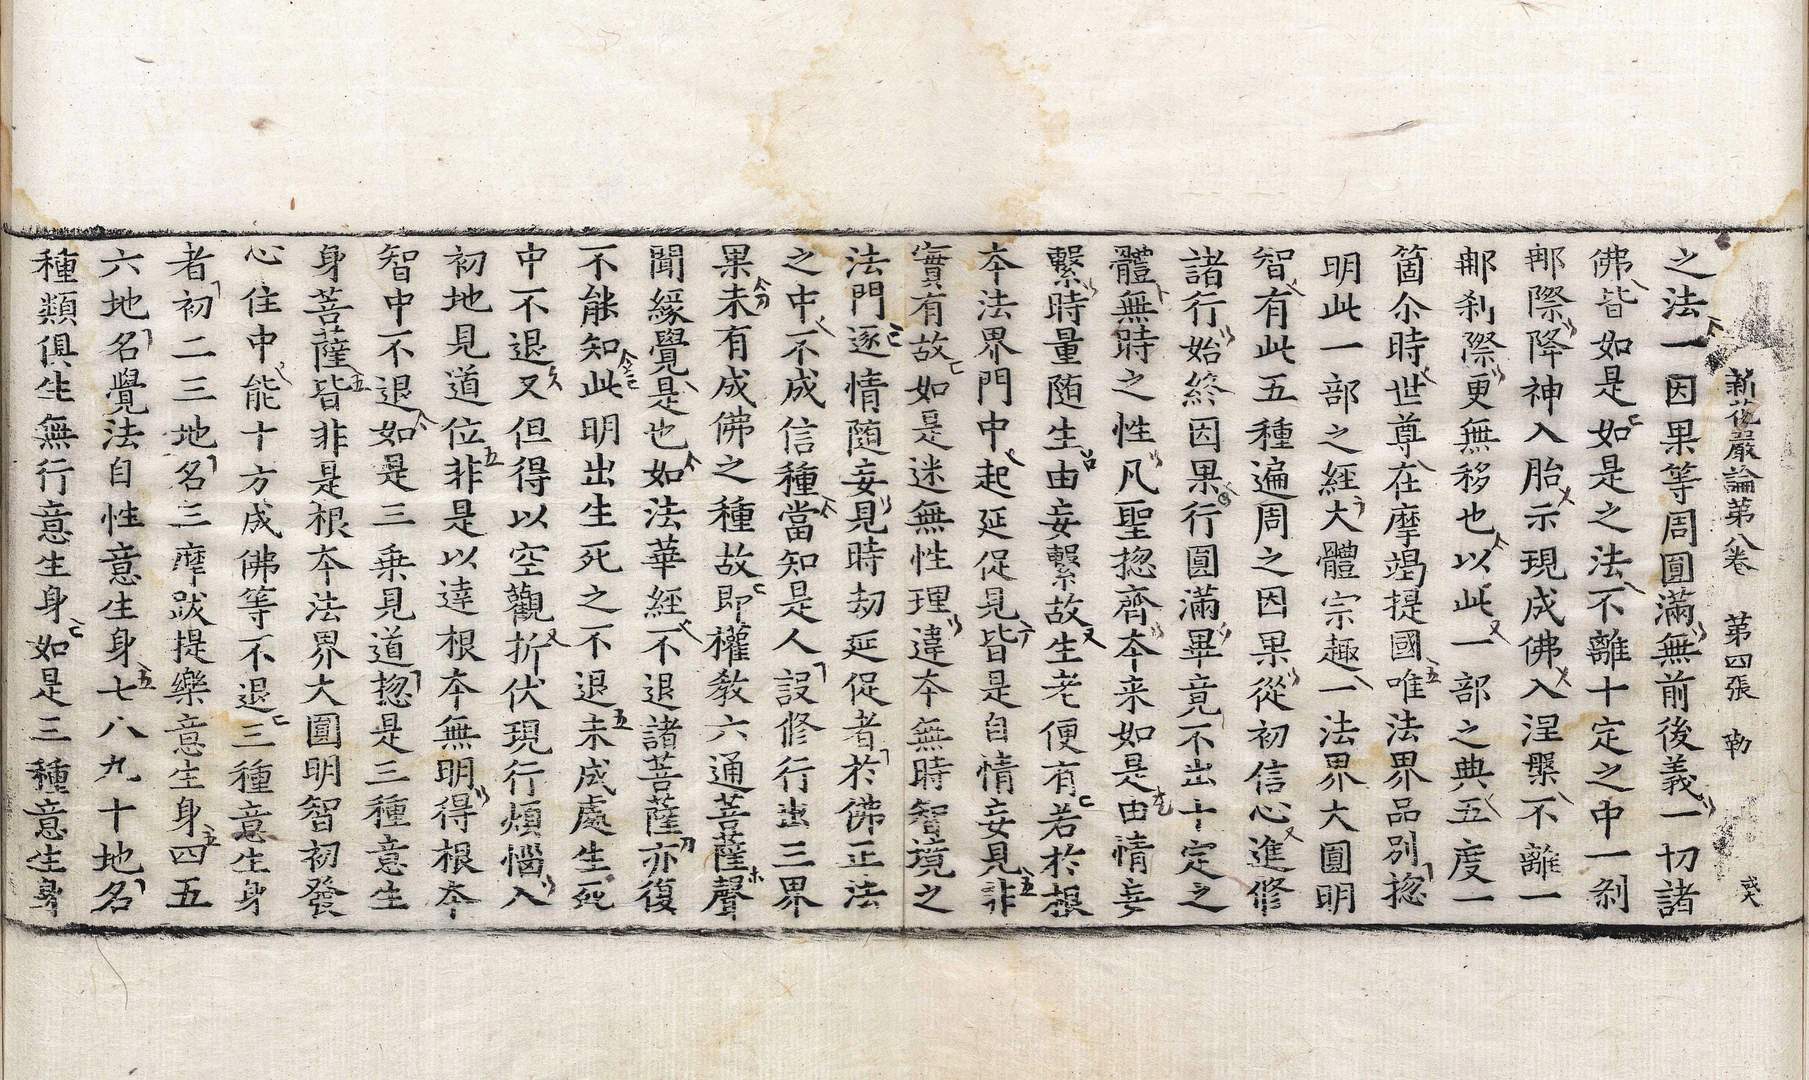 新花嚴論第八卷 第四張 勒
之法一因果等周圓滿無前後義一切諸
佛皆如是如是之法不離十定之中一剎
那際降神入胎示現成佛入涅槃不離一
那刹際更無移也以此一部之典五度一
箇尒時世尊在摩竭提國唯法界品別揔
明此一部之經大體宗趣一法界大圓明
智有此五種遍周之因果從初信心進修
諸行始終因果行圓滿畢竟不出十定之
體無時之性凡聖揔齊本来如是由情妄
繫時量随生由妄繫故生老便有若於根
本法界門中起延促見皆是自情妄見非
實有故如是迷無性理違本無時智境之
法門逐情隨妄見時劫延促者於佛正法
之中不成信種當知是人設修行出三界
果未有成佛之種故即權教六通菩薩聲
聞緣覺是也如法華經不退諸菩薩亦復
不能知此明出生死之不退未成處生死
中不退又但得以空觀折伏現行煩惱入
初地見道位非是以達根本無明得根本
智中不退如是三乗見道揔是三種意生
身菩薩皆非是根本法界大圓明智初發
心住中能十方成佛等不退三種意生身
者初二三地名三摩跋提樂意生身四五
六地名覺法自性意生身七八九十地名
種類俱生無行意生身如是三種意生身